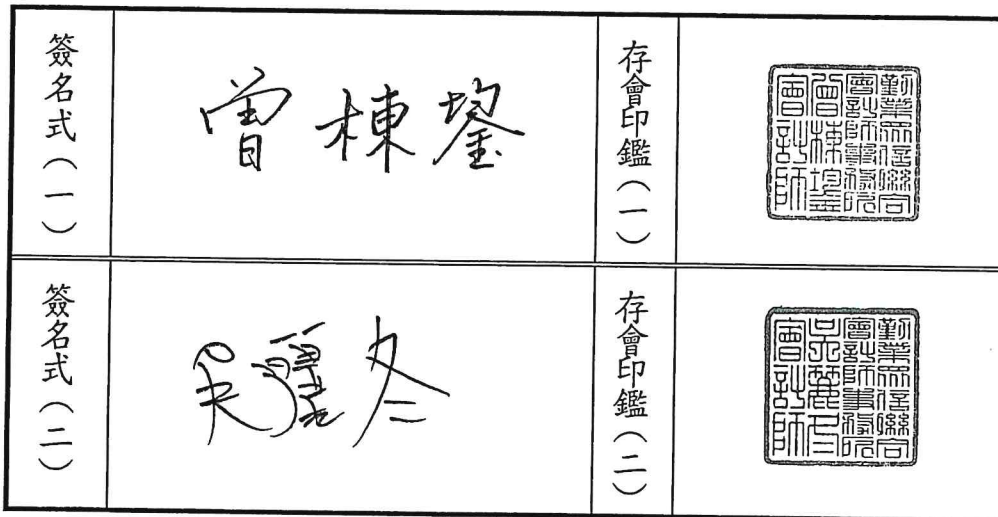 簽名式(一)
曾棟鋆
存會印鑑(一)
勤業眾信聯合
會計師事務所
曾棟鋆
會計師
簽名式(二)
吳麗冬
存會印鑑(二)
勤業眾信聯合
會計師事務所
吳麗冬
會計師